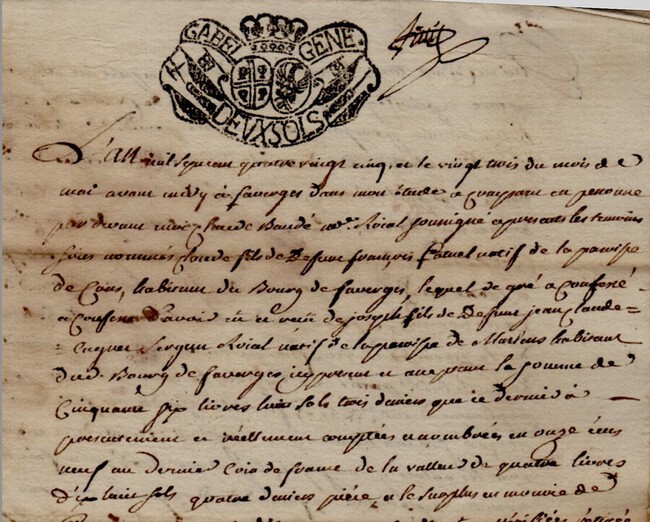 GABEL GENE
DEUX SOLS
L'an mil sept cent quatre vingt cinq, et le vingt trois du mois de
mai avant midy à faverges dans mon étude a comparu en personne
par devant moy Claude Baudé Roial soussigné et presents les temoins
sous nommés Claude fils de Defunt françois natif de la paroisse
de Cons, habitant du Bourg de faverges, lequel de gré a confessé
et confesse d'avoir eu et reçu de joseph fils de Defunt jean Claude
Sergent Roial natif de la paroisse de Marlens habitant
dud Bourg de faverges icy present et acceptant la somme de
Cinquante six livres huit sols trois deniers que ce dernier a
presentement et réellement comptées et nombrées en onze écus
neuf au dernier Coin de france de la valleur de quatre livres
dix huit sols quatre deniers pièce, et le surplus en monoie de